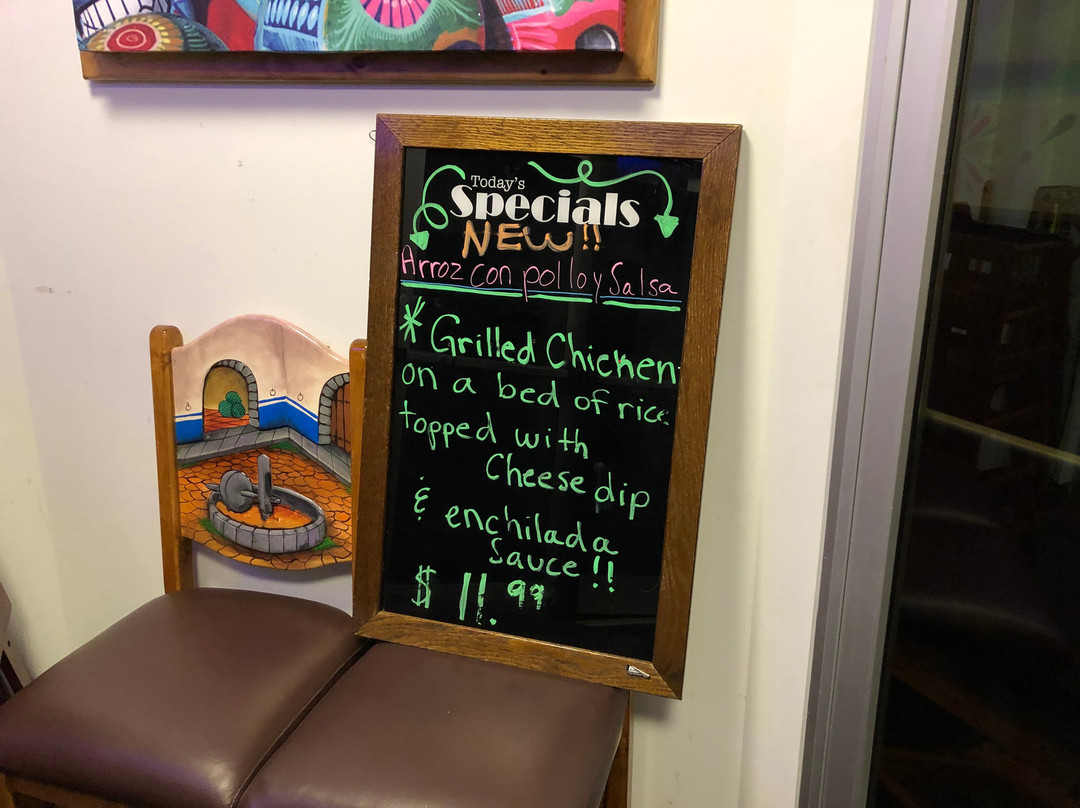 Today's
Specials
NEW!!
Arroz con pollo y Salsa
* Grilled Chicken
on a bed of rice
topped with
Cheese dip
& enchilada
Sauce!!
$ 11.99